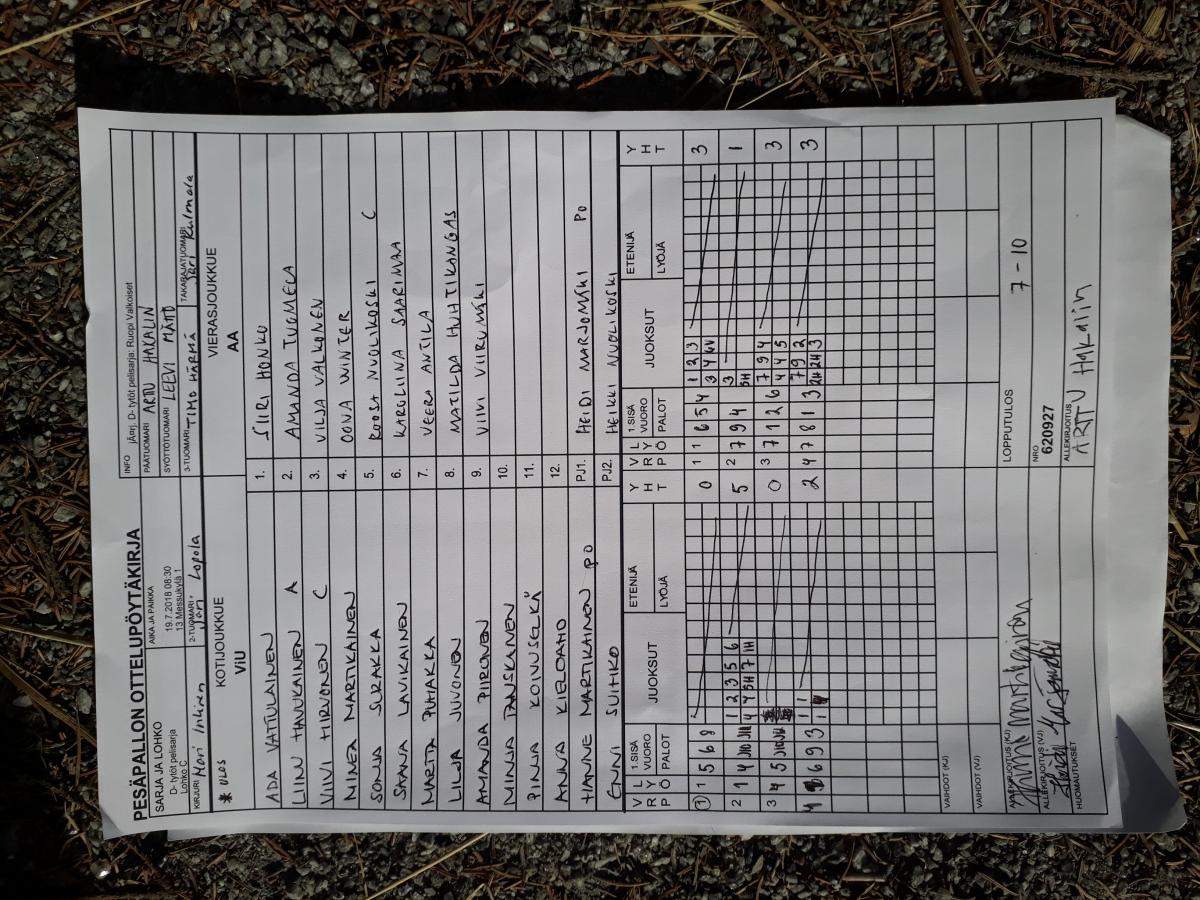 PESÄPALLON OTTELUPÖYTÄKIRJA
SARJA JA LOHKO
D- tytöt pelisarja
Lohko C
AIKA JA PAIKKA
19.7.2018 08:30
13 Messukylä 1
INFO jÄrj. D- tytöt pelisarja: Ruopi Valkoiset
PÄÄTUOMARI ARTTU HAKALIN
SYÖTTÖTUOMARI LEEVI
KIRJURI
2-TUOMARI Jari Lopola
3-TUOMARI TIMO HÄRMÄ
TAKARAJATUOMARI Jari Kulmala
* ULOS
KOTIJOUKKUE
ViU
VIERASJOUKKUE
AA
ADA VATULAINEN 1. SIIRI HONKO
HAUKAINEN A 2. AMANDA TUOMELA
VIIVI HIRVONEN C 3. VILJA VALKONEN
MINEA MARTIKAINEN 4. OONA WINTER
SONJA SURAKKA 5. ROOSA NUOLIKOSKI C
LAVIKAINEN 6. KAROLIINA SAARIMAA
MARTTA PUHAKKA 7. VEERA ANTILA
LILJA JUVONEN 8. MATILDA HUHTIKANGAS
AMANDA PIIRONEN 9. VIIVI VIIRUMÄKI
MINJA TANSKANEN 10.
PINJA KOIVUSELKÄ 11.
ANNA KIELOAHO 12.
HANNE MARTIKAINEN PO PJ1. HEIDI MARJOMÄKI PO
ENNI SUIHKO PJ2. HEIKKI NUOLIKOSKI
V R P
L Y Ö
1.SISÄ VUORO PALOT
JUOKSUT
ETENIJÄ
LYÖJÄ
Y H T
V R P
L Y Ö
1.SISÄ VUORO PALOT
JUOKSUT
ETENIJÄ
LYÖJÄ
Y H T
1 1 5 6 8 0 1 1 6 5 4 1 2 3 3
3 4
2 1 4 1 2 3 5 6 5 2 7 9 4 3 1
3 4 5 0 3 7 1 2 6 7 9 4 3
4 4 5
4 6 9 3 1 1 2 4 7 8 1 3 7 9 2 3
VAIHDOT (KJ)
VAIHDOT (VJ)
LOPPUTULOS 7 - 10
ALLEKIRJOITUS (KJ)
ALLEKIRJOITUS (VJ)
NRO
620927
HUOMAUTUKSET
ALLEKIRJOITUS
ARTTU HAKALIN